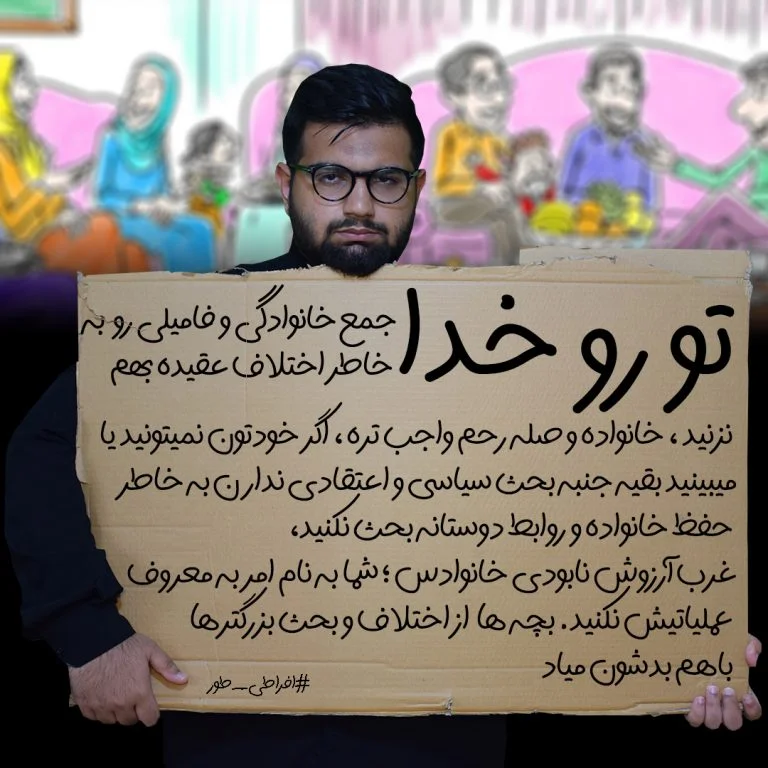 تو رو خدا
جمع خانوادگی و فامیلی رو به
خاطر اختلاف عقیده بهم
نزنید ، خانواده و صله رحم واجب تره ، اگر خودتون نمیتونید یا
میبینید بقیه جنبه بحث سیاسی و اعتقادی ندارن به خاطر
حفظ خانواده و روابط دوستانه بحث نکنید،
غرب آرزوش نابودی خانوادس ؛ شما به نام امر به معروف
عملیاتیش نکنید . بچه ها از اختلاف و بحث بزرگترها
باهم بدشون میاد
#افراطی_طور